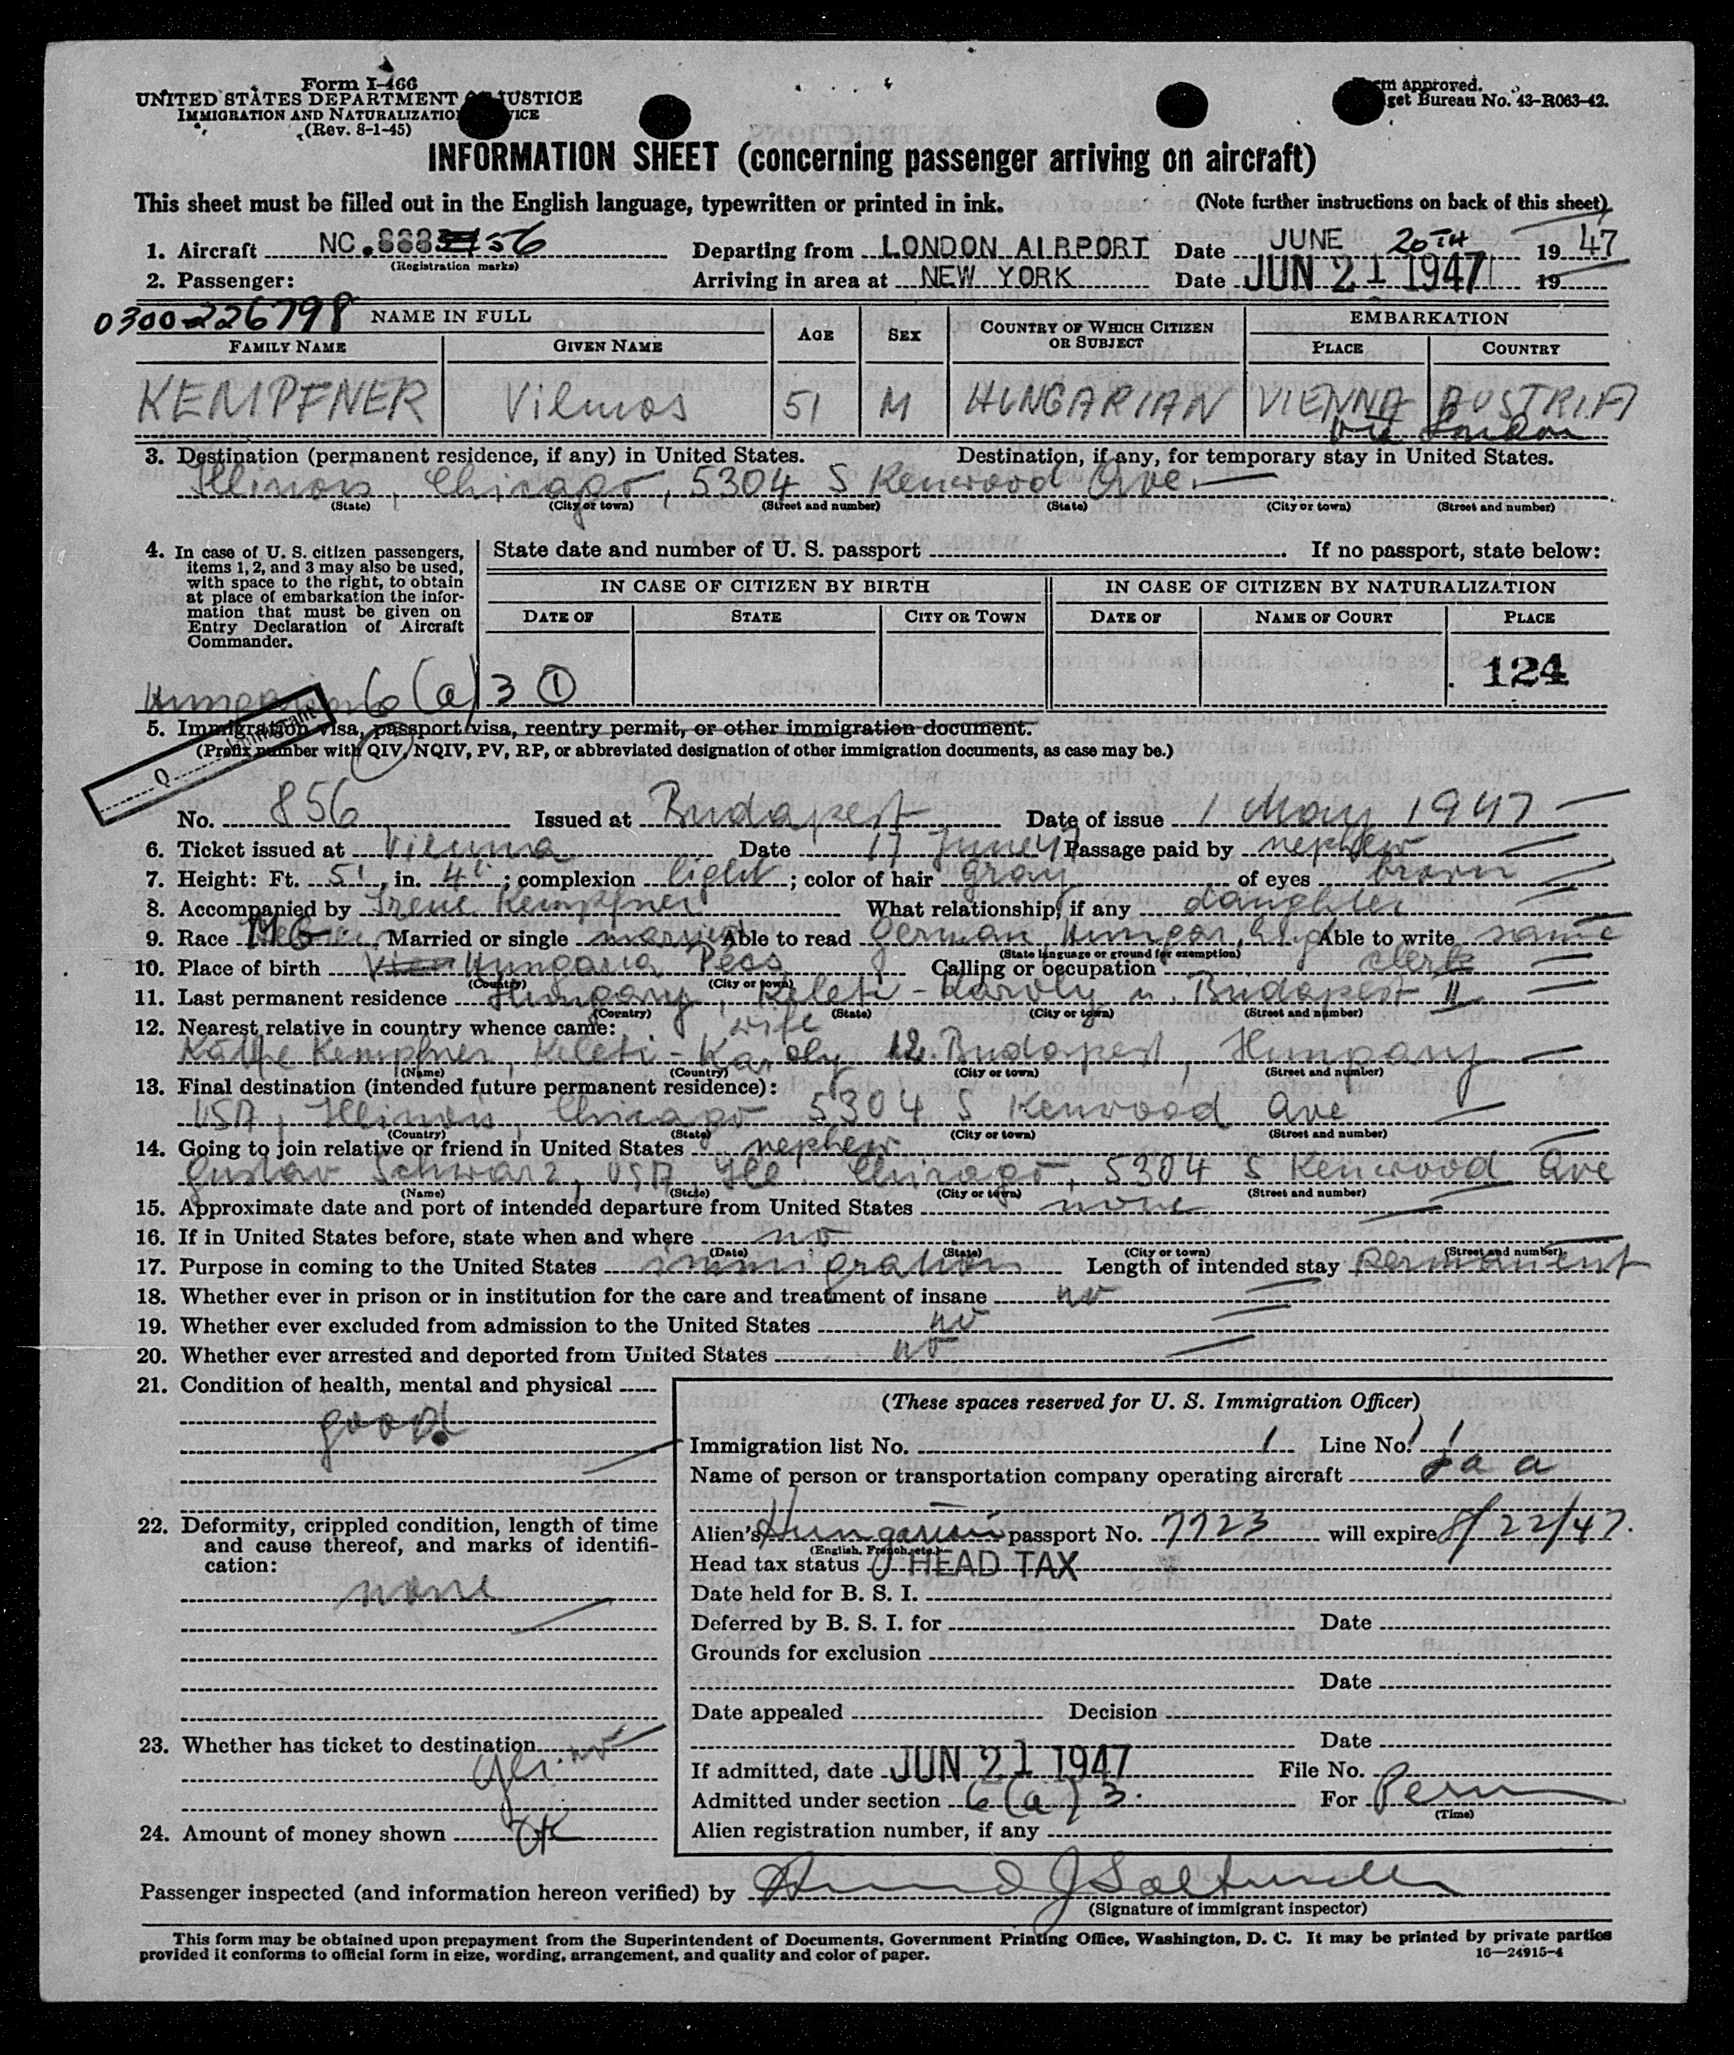 Form I-466
UNITED STATES DEPARTMENT OF JUSTICE
IMMIGRATION AND NATURALIZATION SERVICE
(Rev. 8-1-45)
Form approved.
Budget Bureau No. 43-R063-42.
INFORMATION SHEET (concerning passenger arriving on aircraft)
This sheet must be filled out in the English language, typewritten or printed in ink. (Note further instructions on back of this sheet)
1. Aircraft NC. 888 56 Departing from LONDON AIRPORT Date JUNE 20TH 19 47
(Registration marks)
2. Passenger: Arriving in area at NEW YORK Date JUN 21 1947 19
0300-226798 NAME IN FULL
FAMILY NAME GIVEN NAME AGE SEX COUNTRY OF WHICH CITIZEN OR SUBJECT EMBARKATION PLACE COUNTRY
KEMPFNER Vilmos 51 M HUNGARIAN VIENNA AUSTRIA
via London
3. Destination (permanent residence, if any) in United States. Destination, if any, for temporary stay in United States.
Illinois, Chicago, 5304 S Kenwood Ave.
(State) (City or town) (Street and number) (State) (City or town) (Street and number)
4. In case of U. S. citizen passengers, items 1, 2, and 3 may also be used, with space to the right, to obtain at place of embarkation the information that must be given on Entry Declaration of Aircraft Commander.
State date and number of U. S. passport . If no passport, state below:
IN CASE OF CITIZEN BY BIRTH IN CASE OF CITIZEN BY NATURALIZATION
DATE OF STATE CITY OR TOWN DATE OF NAME OF COURT PLACE
124
Hungarian 6(a) 3 1
5. Immigration visa, passport visa, reentry permit, or other immigration document.
(Prefix number with QIV, NQIV, PV, RP, or abbreviated designation of other immigration documents, as case may be.)
Q Immigrant
No. 856 Issued at Budapest Date of issue 1 May 1947
6. Ticket issued at Vienna Date 17 June 47 Passage paid by nephew
7. Height: Ft. 5', in. 4"; complexion light; color of hair gray of eyes brown
8. Accompanied by Irene Kempfner What relationship, if any daughter
9. Race MG Married or single married Able to read German, Hungar, Engl Able to write same
(State language or ground for exemption)
10. Place of birth Hungaria Pecs Calling or occupation clerk
(Country) (City or town)
11. Last permanent residence Hungary, Keleti-Karoly u. Budapest II
(Country) (State) (City or town) (Street and number)
12. Nearest relative in country whence came: wife
Käthe Kempfner, Keleti-Karoly 12. Budapest, Hungary
(Name) (Country) (City or town) (Street and number)
13. Final destination (intended future permanent residence):
USA, Illinois, Chicago 5304 S Kenwood Ave
(Country) (State) (City or town) (Street and number)
14. Going to join relative or friend in United States nephew
Gustav Schwarz, USA, Ill. Chicago, 5304 S Kenwood Ave
(Name) (State) (City or town) (Street and number)
15. Approximate date and port of intended departure from United States none
16. If in United States before, state when and where no
(Date) (State) (City or town) (Street and number)
17. Purpose in coming to the United States immigration Length of intended stay permanent
18. Whether ever in prison or in institution for the care and treatment of insane no
19. Whether ever excluded from admission to the United States no
20. Whether ever arrested and deported from United States no
21. Condition of health, mental and physical
good
22. Deformity, crippled condition, length of time and cause thereof, and marks of identification:
none
23. Whether has ticket to destination no
yes
24. Amount of money shown OK
(These spaces reserved for U. S. Immigration Officer)
Immigration list No. 1 Line No. 1
Name of person or transportation company operating aircraft
Alien's Hungarian passport No. 7723 will expire 8/22/47.
(English, French, etc.)
Head tax status HEAD TAX
Date held for B. S. I.
Deferred by B. S. I. for Date
Grounds for exclusion
Date
Date appealed Decision
Date
If admitted, date JUN 21 1947 File No.
Admitted under section 6(a) 3. For Perm
(Time)
Alien registration number, if any
Passenger inspected (and information hereon verified) by
(Signature of immigrant inspector)
This form may be obtained upon prepayment from the Superintendent of Documents, Government Printing Office, Washington, D. C. It may be printed by private parties
provided it conforms to official form in size, wording, arrangement, and quality and color of paper. 16—24915-4